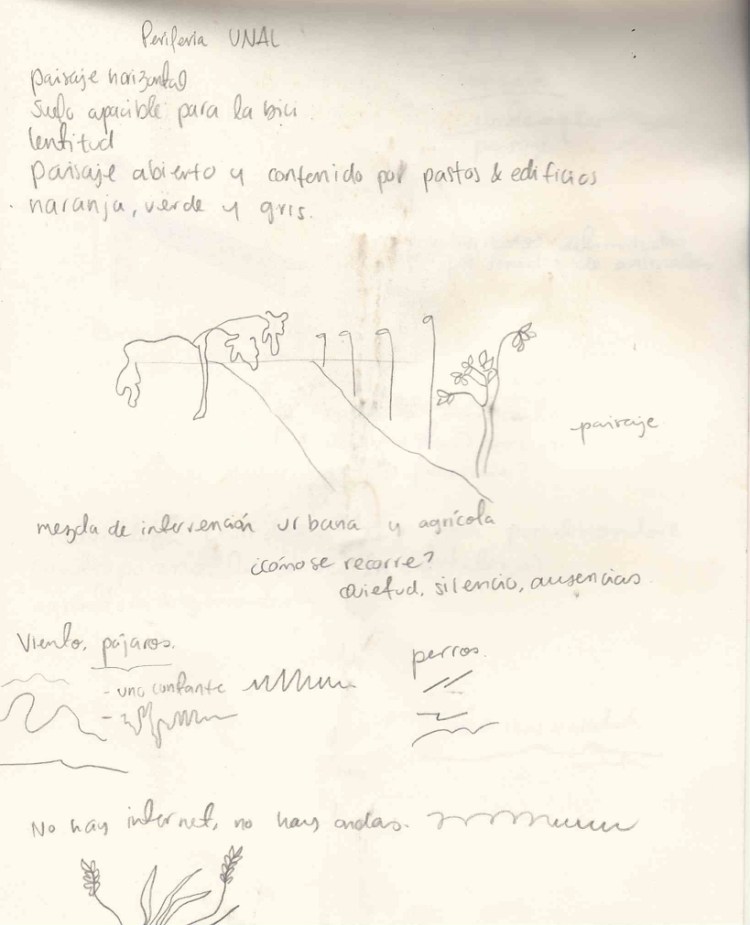 Periferia UNAL
paisaje horizontal
Suelo apacible para la bici
lentitud
paisaje abierto y contenido por pastos & edificios
naranja, verde y gris.
paisaje
mezcla de intervención urbana y agrícola
¿cómo se recorre?
Quietud, silencio, ausencias
Viento. pájaros.
perros.
- uno constante
-
No hay internet, no hay ondas.